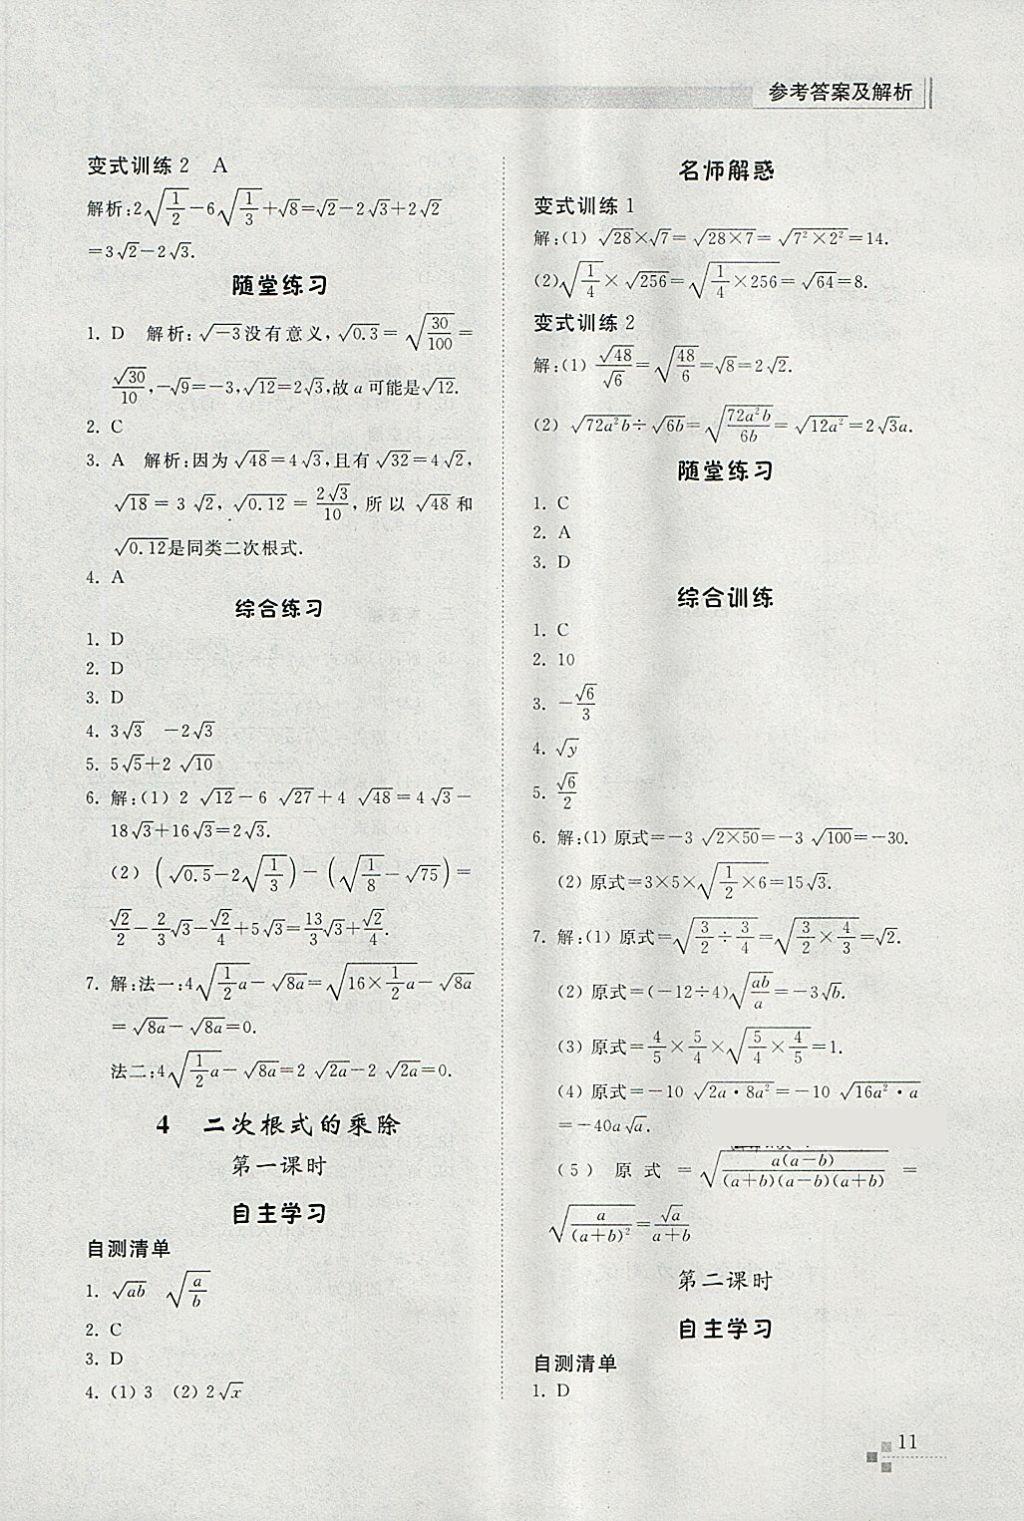 参考答案及解析
变式训练2 A
解析:2√(1/2)-6√(1/3)+√8=√2-2√3+2√2
=3√2-2√3.
随堂练习
1. D 解析:√-3没有意义,√0.3=√(30/100)=
√30/10,-√9=-3,√12=2√3,故a可能是√12.
2. C
3. A 解析:因为√48=4√3,且有√32=4√2,
√18=3√2,√0.12=2√3/10,所以√48和
√0.12是同类二次根式.
4. A
综合练习
1. D
2. D
3. D
4. 3√3 -2√3
5. 5√5+2√10
6. 解:(1)2√12-6√27+4√48=4√3-
18√3+16√3=2√3.
(2)(√0.5-2√(1/3))-(√(1/8)-√75)=
√2/2-2/3√3-√2/4+5√3=13/3√3+√2/4.
7. 解:法一:4√(1/2 a)-√8a=√(16×1/2 a)-√8a
=√8a-√8a=0.
法二:4√(1/2 a)-√8a=2√2a-2√2a=0.
4 二次根式的乘除
第一课时
自主学习
自测清单
1. √ab √(a/b)
2. C
3. D
4. (1)3 (2)2√x
名师解惑
变式训练1
解:(1)√28×√7=√(28×7)=√(7²×2²)=14.
(2)√(1/4)×√256=√(1/4×256)=√64=8.
变式训练2
解:(1)√48/√6=√(48/6)=√8=2√2.
(2)√(72a²b)÷√6b=√(72a²b/6b)=√(12a²)=2√3a.
随堂练习
1. C
2. A
3. D
综合训练
1. C
2. 10
3. -√6/3
4. √y
5. √6/2
6. 解:(1)原式=-3√(2×50)=-3√100=-30.
(2)原式=3×5×√(1/2×6)=15√3.
7. 解:(1)原式=√(3/2÷3/4)=√(3/2×4/3)=√2.
(2)原式=(-12÷4)√(ab/a)=-3√b.
(3)原式=4/5×5/4×√(5/4×4/5)=1.
(4)原式=-10√(2a·8a²)=-10√(16a²·a)
=-40a√a.
(5)原式=√(a(a-b)/((a+b)(a-b)(a+b)))=
√(a/(a+b)²)=√a/(a+b)
第二课时
自主学习
自测清单
1. D
11